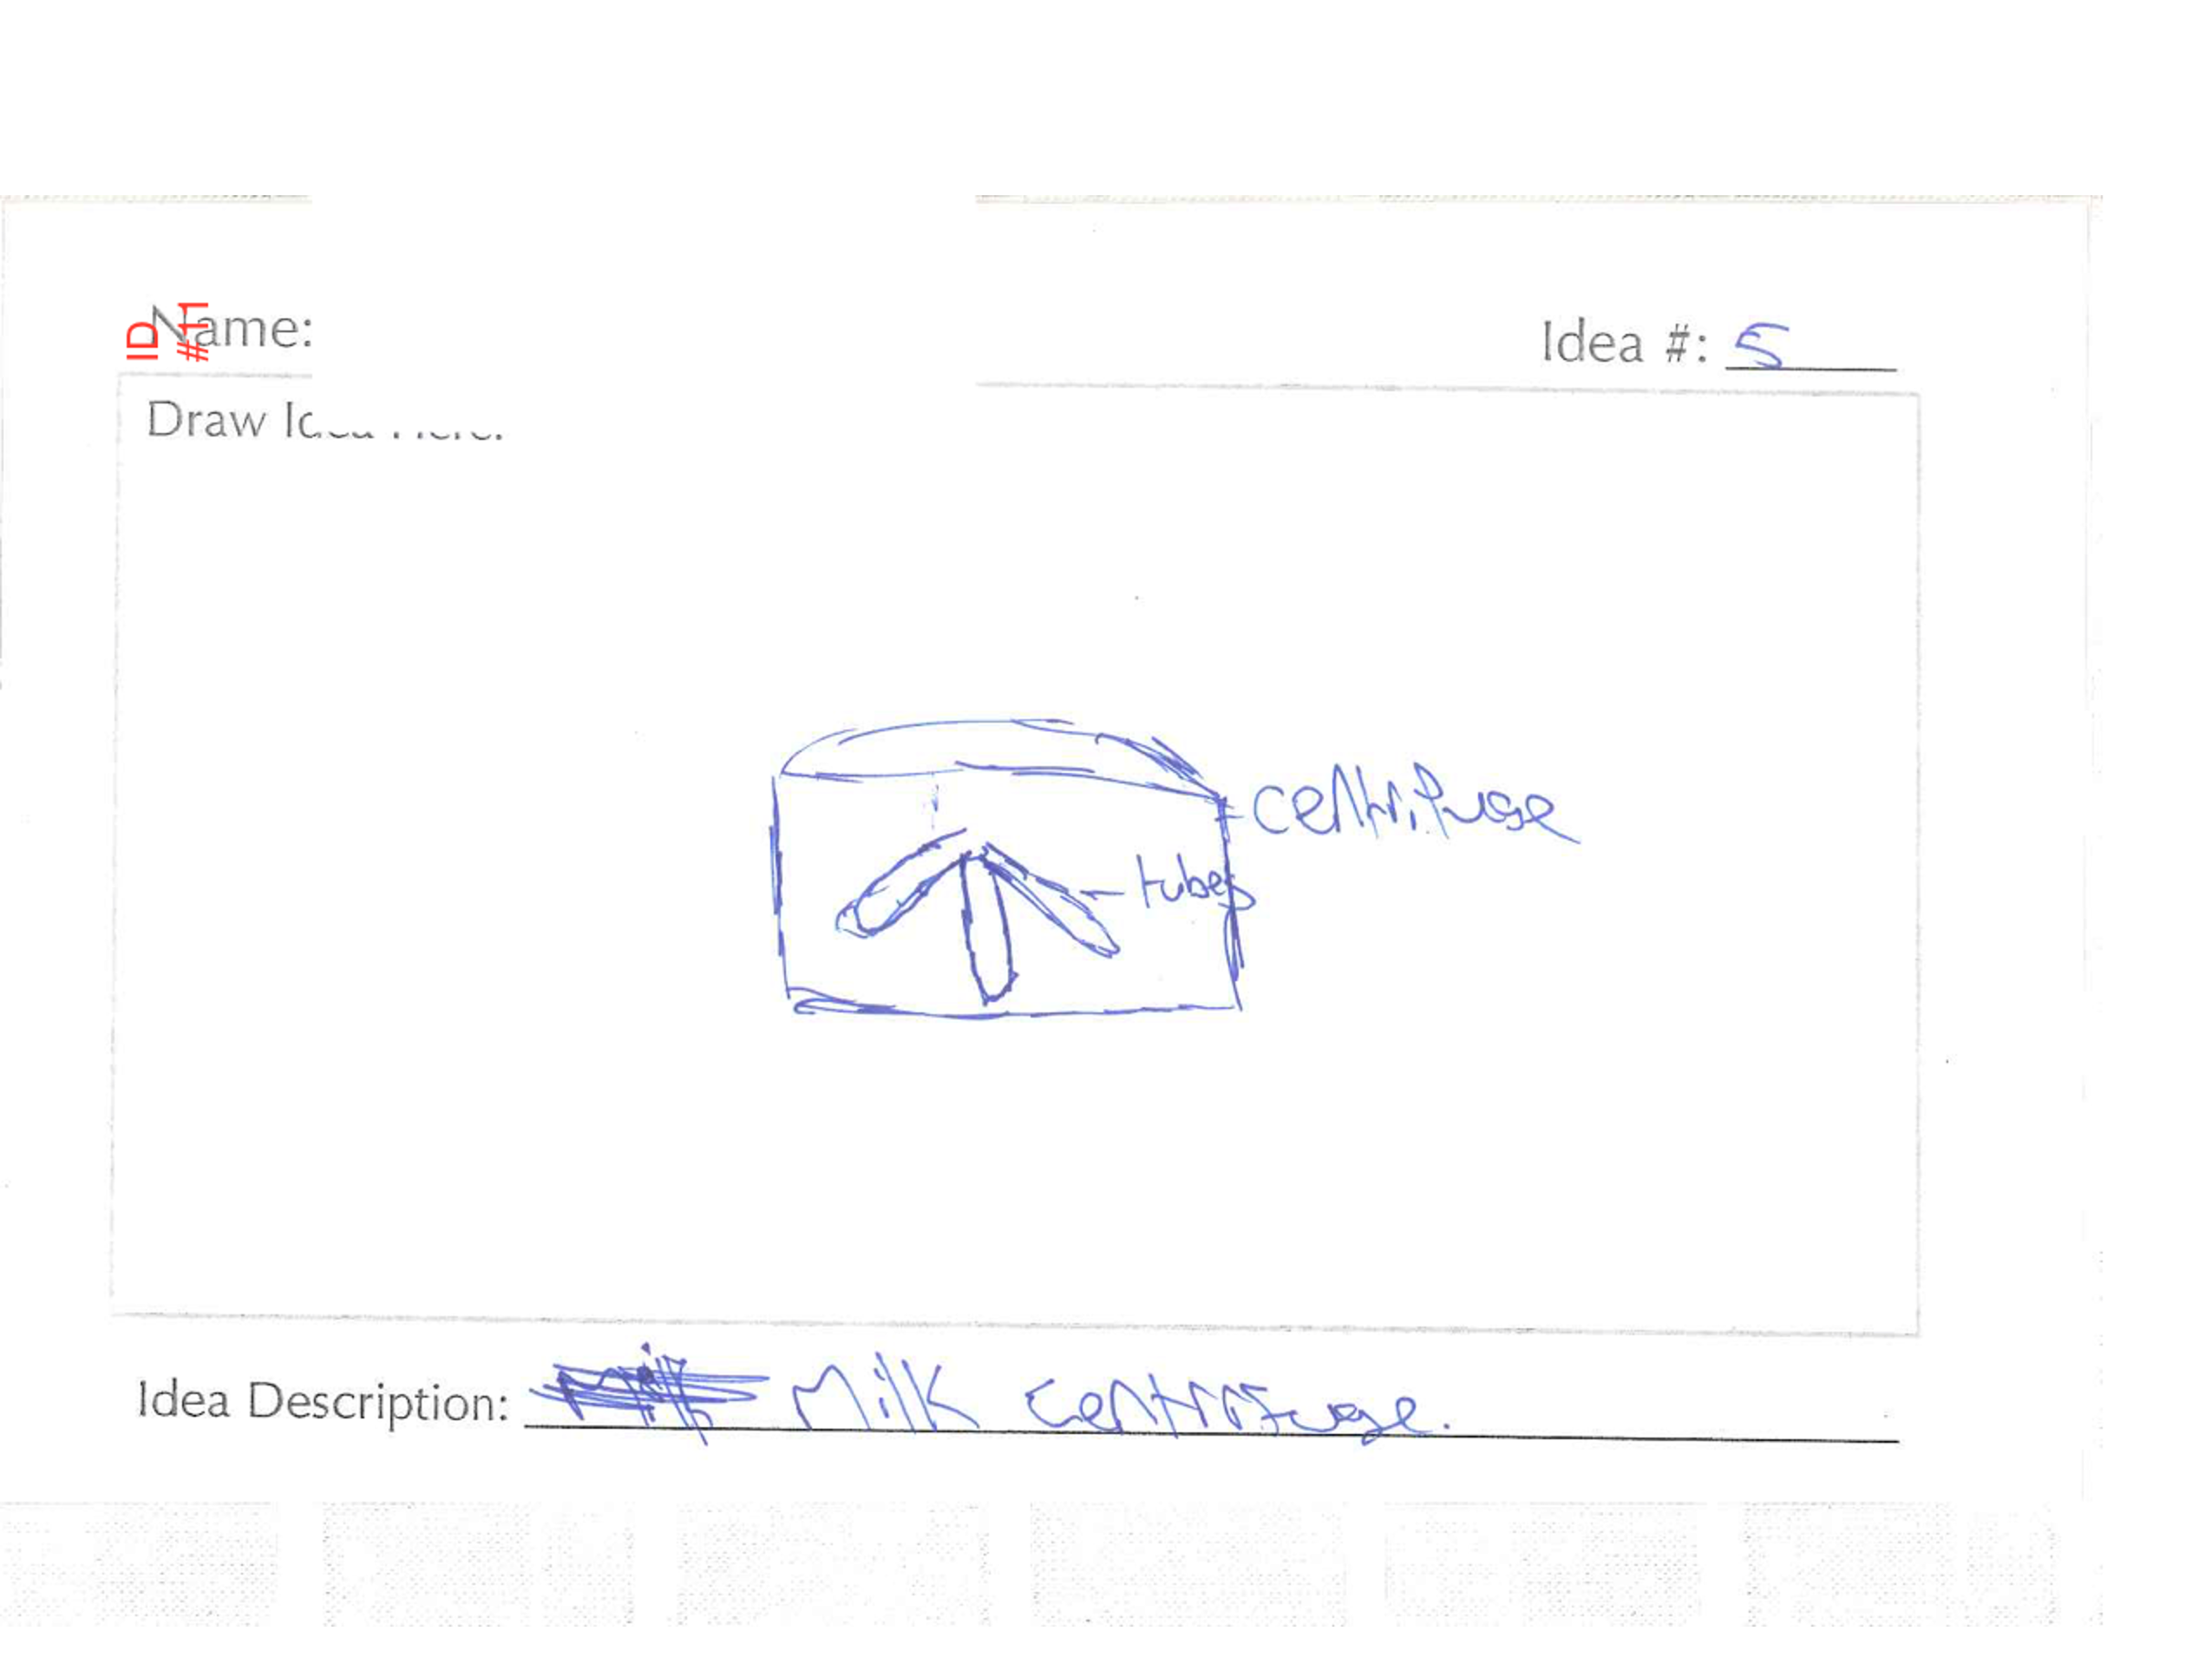 ID
# 11
Name:
Idea #: 5
Draw Idea Here:
centrifuge
tubes
Idea Description: Milk Centrifuge.